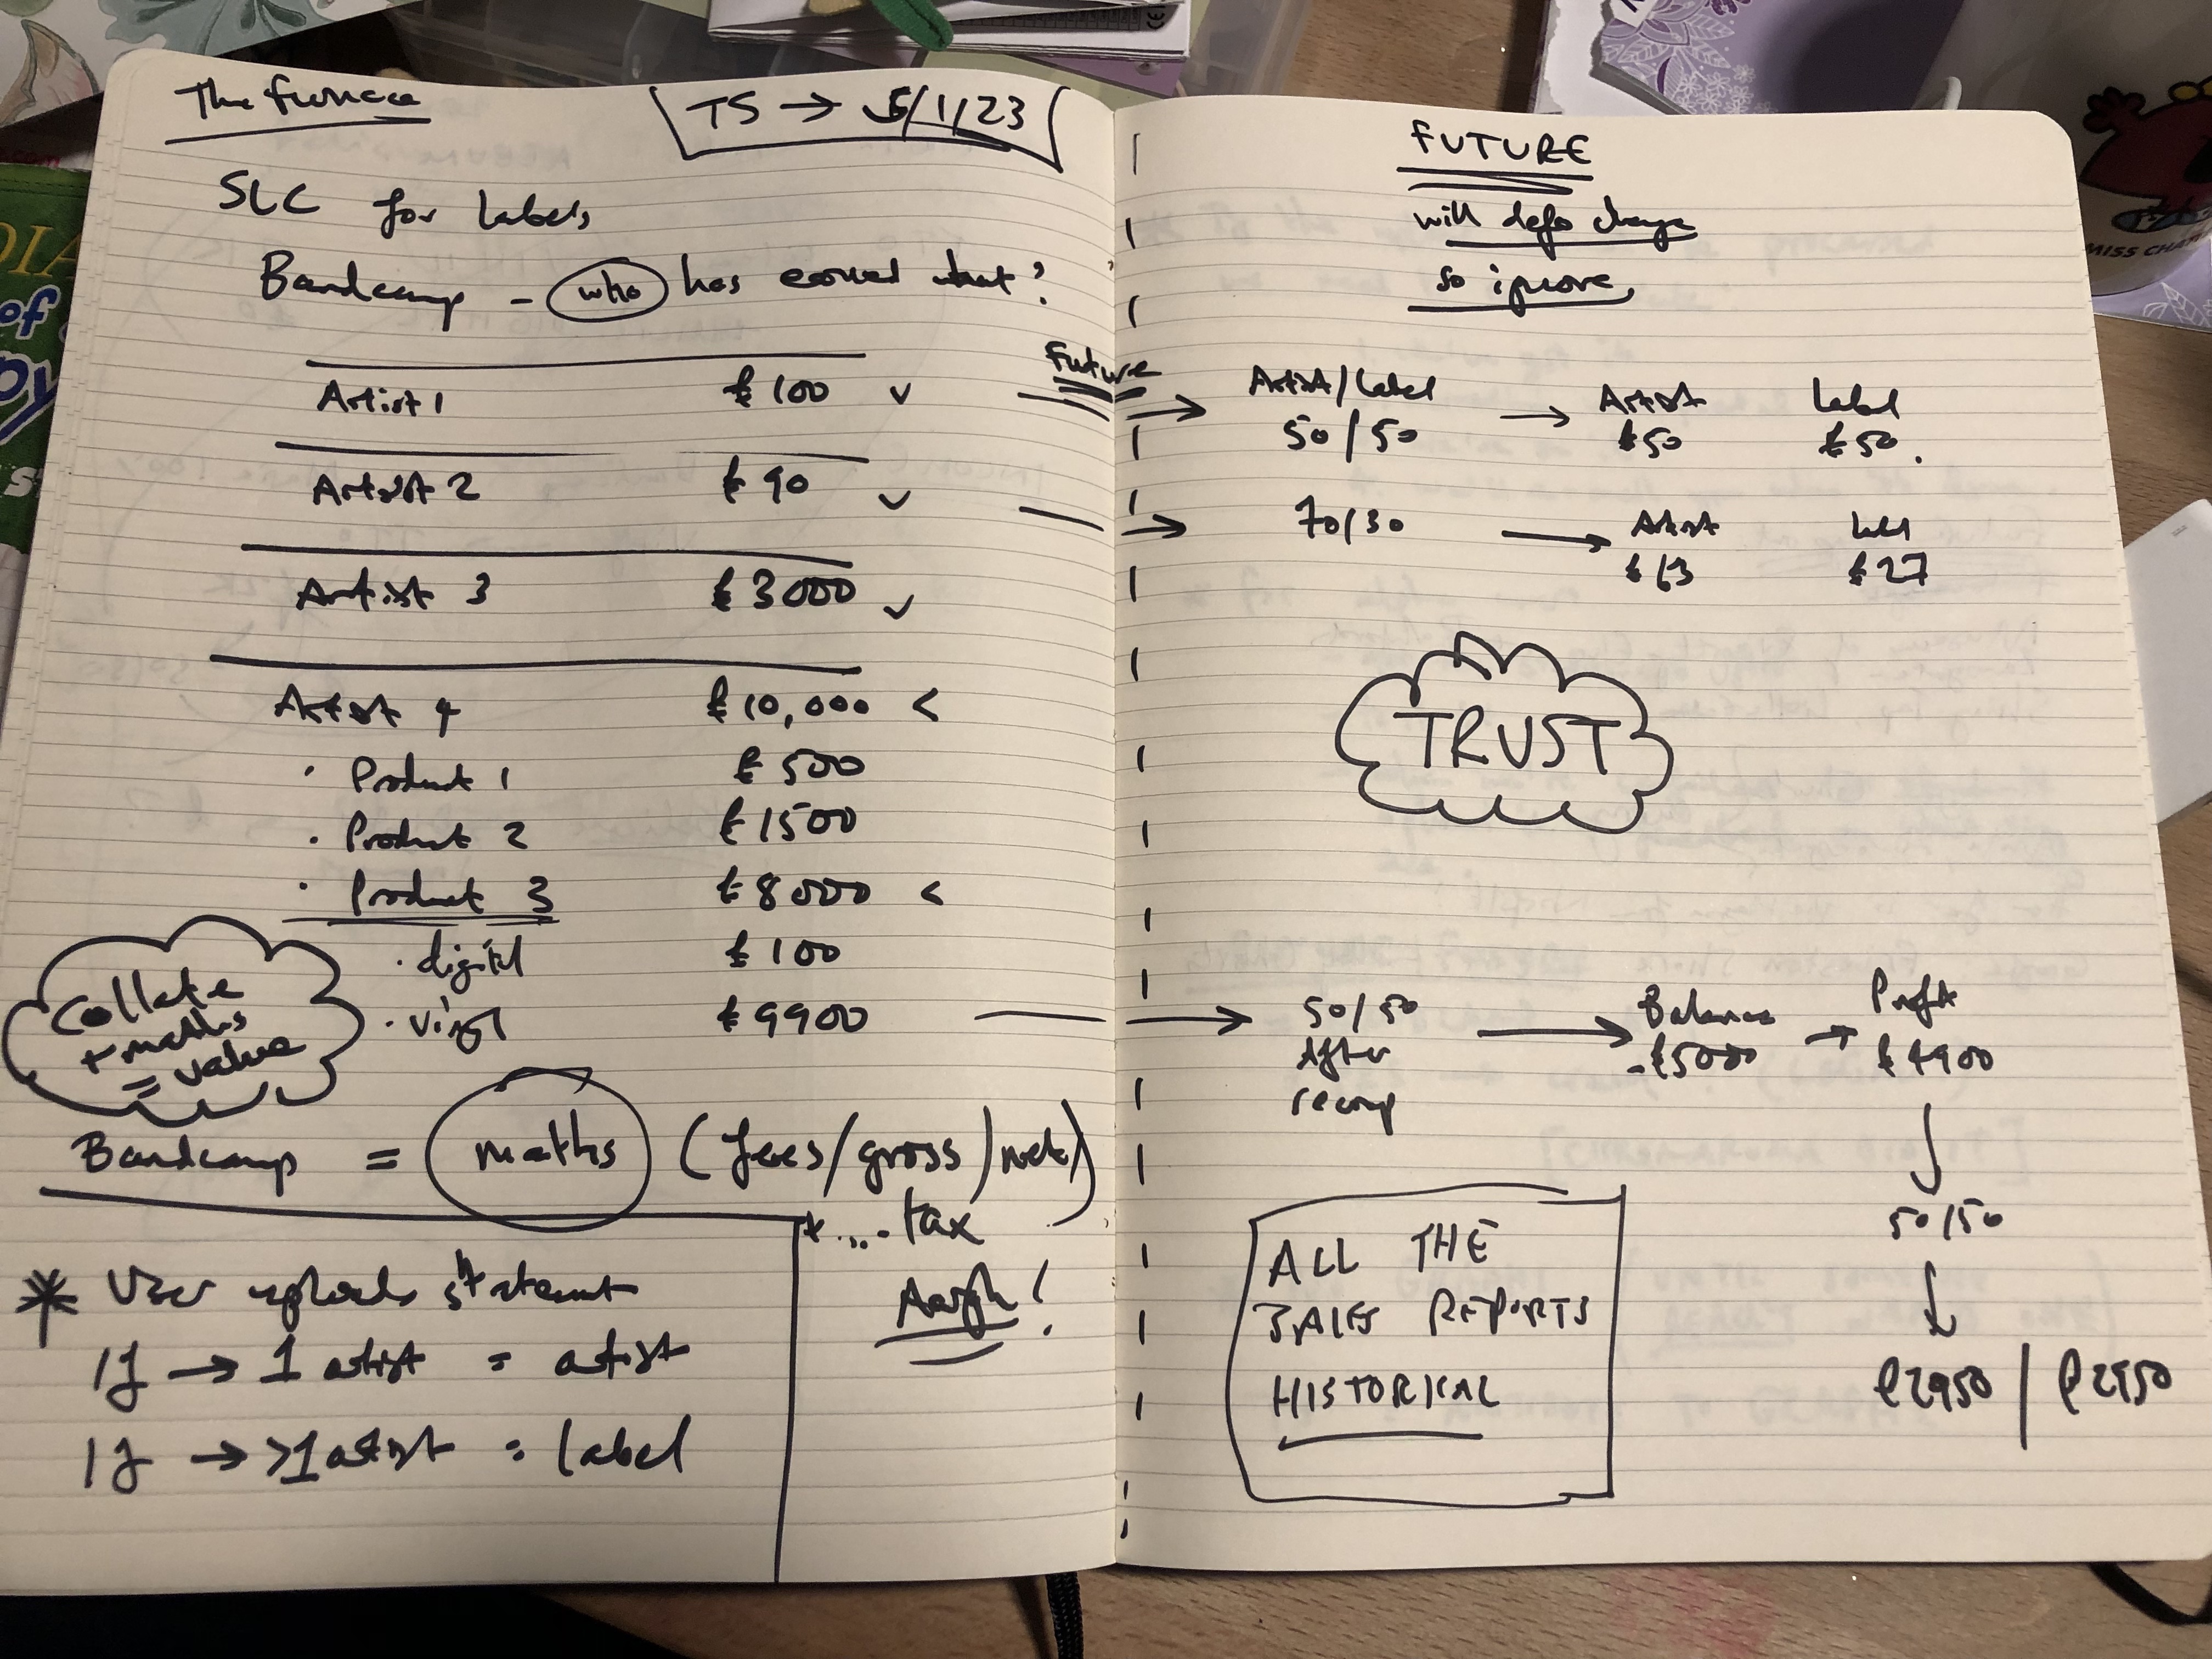 The furnace
TS → 5/1/23
SLC for Labels
Bandcamp - who has earned what?
Artist 1 £100
Artist 2 £90
Artist 3 £3000
Artist 4 £10,000 <
· Product 1 £500
· Product 2 £1500
· Product 3 £8000 <
· digital £100
· vinyl £9900
Collate
+ maths
= value
Bandcamp = maths (fees/gross/net)
+ .... tax
Aargh!
* User uploads statement
If → 1 artist = artist
If → >1 artist = label
FUTURE
will defo change
so ignore
Future
→ Artist/Label → Artist Label
50/50 £50 £50.
→ 70/30 → Artist Label
£63 £27
TRUST
→ 50/50 → Balance → Profit
After -£5000 £4900
recoup
50/50
£2950 | £2950
ALL THE
SALES REPORTS
HISTORICAL
MISS CHA
of